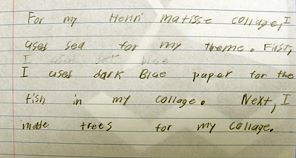 For my Henri matisse collage, I
used sea for my theme. First,
I used dark Blue paper for the
fish in my collage. Next, I
made trees for my collage.